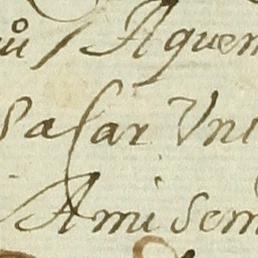 Aquem
Saſar Uni
Ami sem